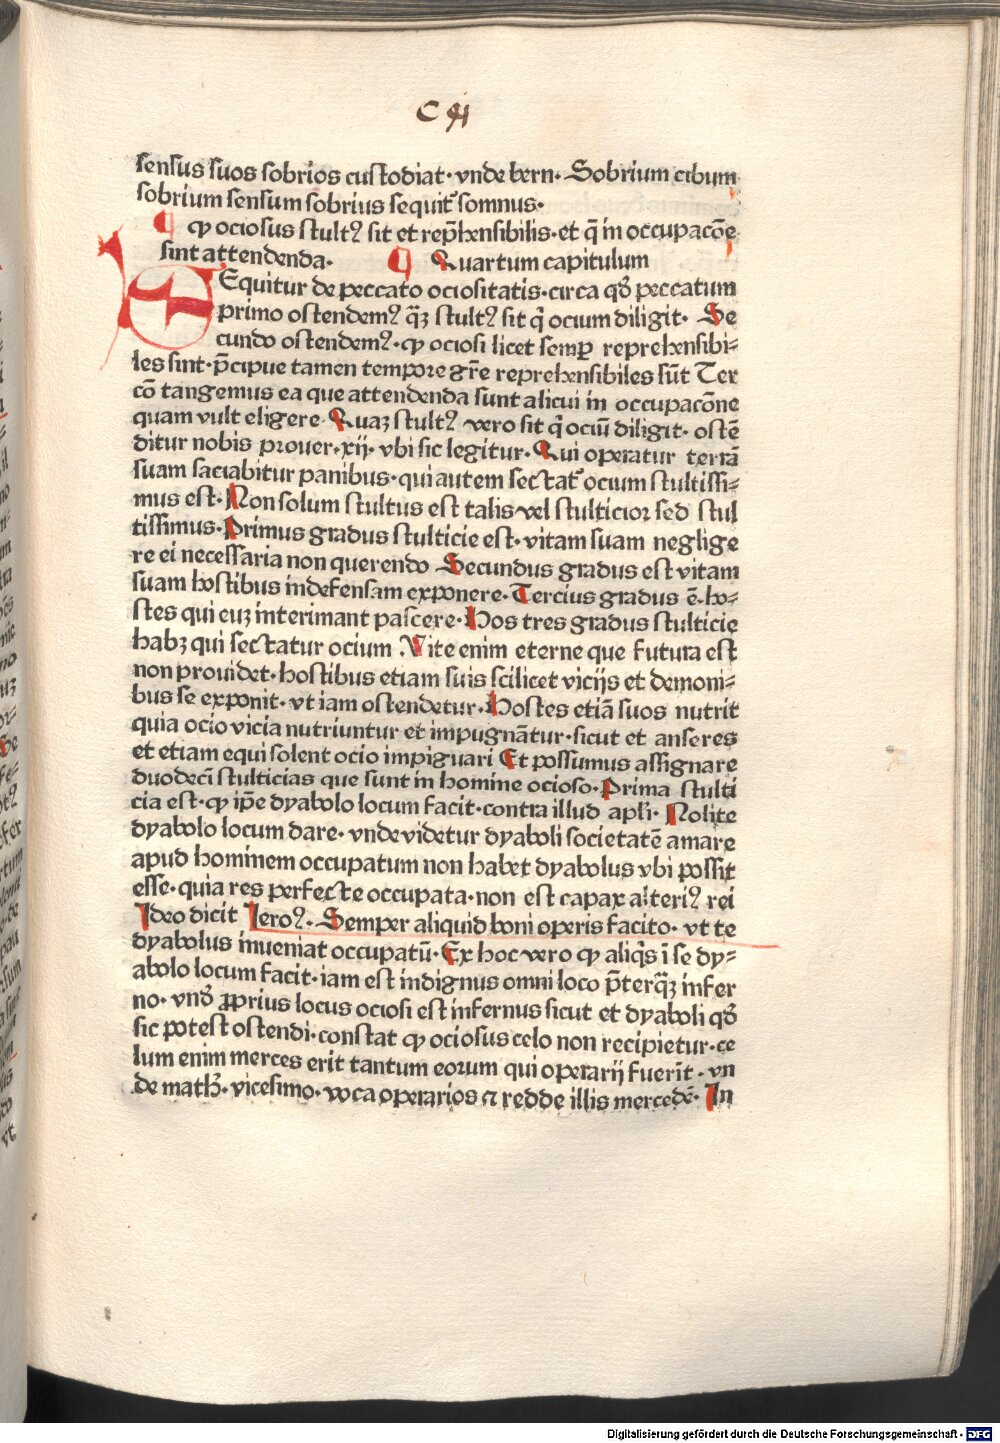 C
sensus suos sobrios custodiat· vnde bern· Sobrium cibum
sobrium sensum sobrius sequit᷑ somnus·
ꝙ ociosus stultꝰ sit et rep̄hensibilis· et q̄ in occupacōe
sint attendenda· Quartum capitulum
SEquitur de peccato ociositatis· circa qđ peccatum
primo ostendemꝰ qꝫ stultꝰ sit q̄ ocium diligit· Se
cundo ostendemꝰ· ꝙ ociosi licet semꝑ reprehensibi⸗
les sint· p̄cipue tamen tempore gr̄e reprehensibiles sūt Ter
cō tangemus ea que attendenda sunt alicui in occupacōne
quam vult eligere Quaꝫ stultꝰ vero sit q̄ ociū diligit· ostē
ditur nobis prouer· xij· vbi sic legitur· Qui operatur terrā
suam saciabitur panibus· qui autem sectat᷑ ocium stultissi⸗
mus est· Non solum stultus est talis vel stulticior sed stul
tissimus· Primus gradus stulticie est· vitam suam neglige
re ei necessaria non querendo Secundus gradus est vitam
suam hostibus indefensam exponere· Tercius gradus ē· ho⸗
stes qui euꝫ interimant pascere· Hos tres gradus stulticie
habꝫ qui sectatur ocium Vite enim eterne que futura est
non prouidet· hostibus etiam suis scilicet vicijs et demoni⸗
bus se exponit· vt iam ostendetur· Hostes etiā suos nutrit
quia ocio vicia nutriuntur et impugnātur· sicut et anseres
et etiam equi solent ocio impiguari Et possumus assignare
duodecī stulticias que sunt in homine ocioso· Prima stulti
cia est· ꝙ ip̄e dyabolo locum facit· contra illud apl̄i· Nolite
dyabolo locum dare· vnde videtur dyaboli societatē amare
apud hominem occupatum non habet dyabolus vbi possit
esse· quia res perfecte occupata· non est capax alteriꝰ rei
Ideo dicit Ieroꝰ· Semper aliquid boni operis facito· vt te
dyabolus inueniat occupatū· Ex hoc vero ꝙ aliq̄s ī se dy⸗
abolo locum facit· iam est indignus omni loco p̄terqꝫ infer
no· vnđ ꝓprius locus ociosi est infernus sicut et dyaboli qđ
sic potest ostendi· constat ꝙ ociosus celo non recipietur· ce
lum enim merces erit tantum eorum qui operarij fuerīt· vn
de math̄· vicesimo· voca operarios ⁊ redde illis mercedē· In
Digitalisierung gefördert durch die Deutsche Forschungsgemeinschaft - DFG